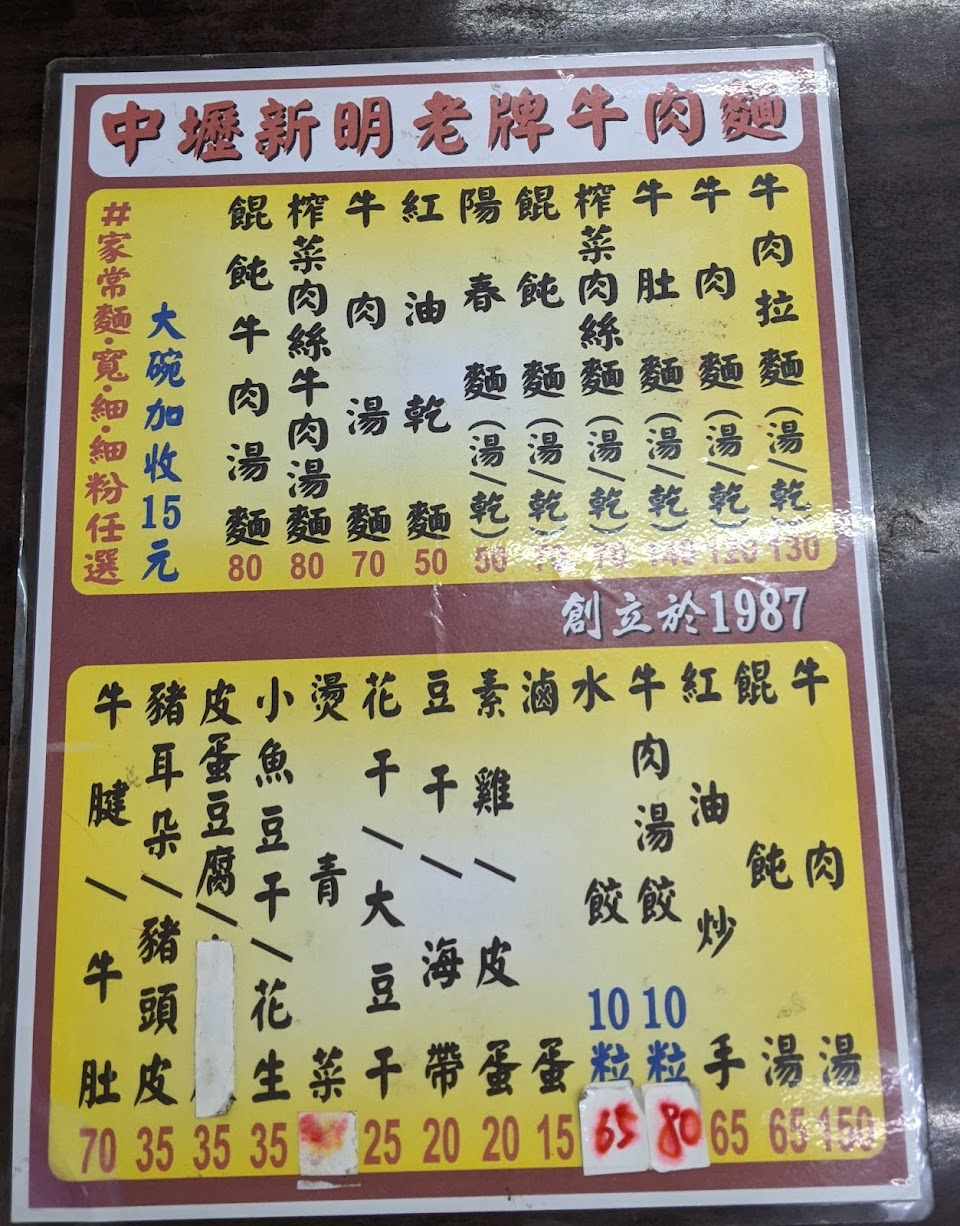 中壢新明老牌牛肉麵
牛肉拉麵(湯/乾) 130
牛肉麵(湯/乾) 120
牛肚麵(湯/乾) 140
榨菜肉絲麵(湯/乾) 70
餛飩麵(湯/乾) 70
陽春麵(湯/乾) 50
紅油乾麵 50
牛肉湯麵 70
榨菜肉絲牛肉湯麵 80
餛飩牛肉湯麵 80
大碗加收15元
#家常麵·寬·細·細粉任選
創立於1987
牛肉湯 150
餛飩湯 65
紅油炒手 65
牛肉湯餃10粒 80
水餃10粒 65
滷蛋 15
素雞/皮蛋 20
豆干/海帶 20
花干/大豆干 25
燙青菜
小魚豆干/花生 35
皮蛋豆腐/ 35
豬耳朵/豬頭皮 35
牛腱/牛肚 70